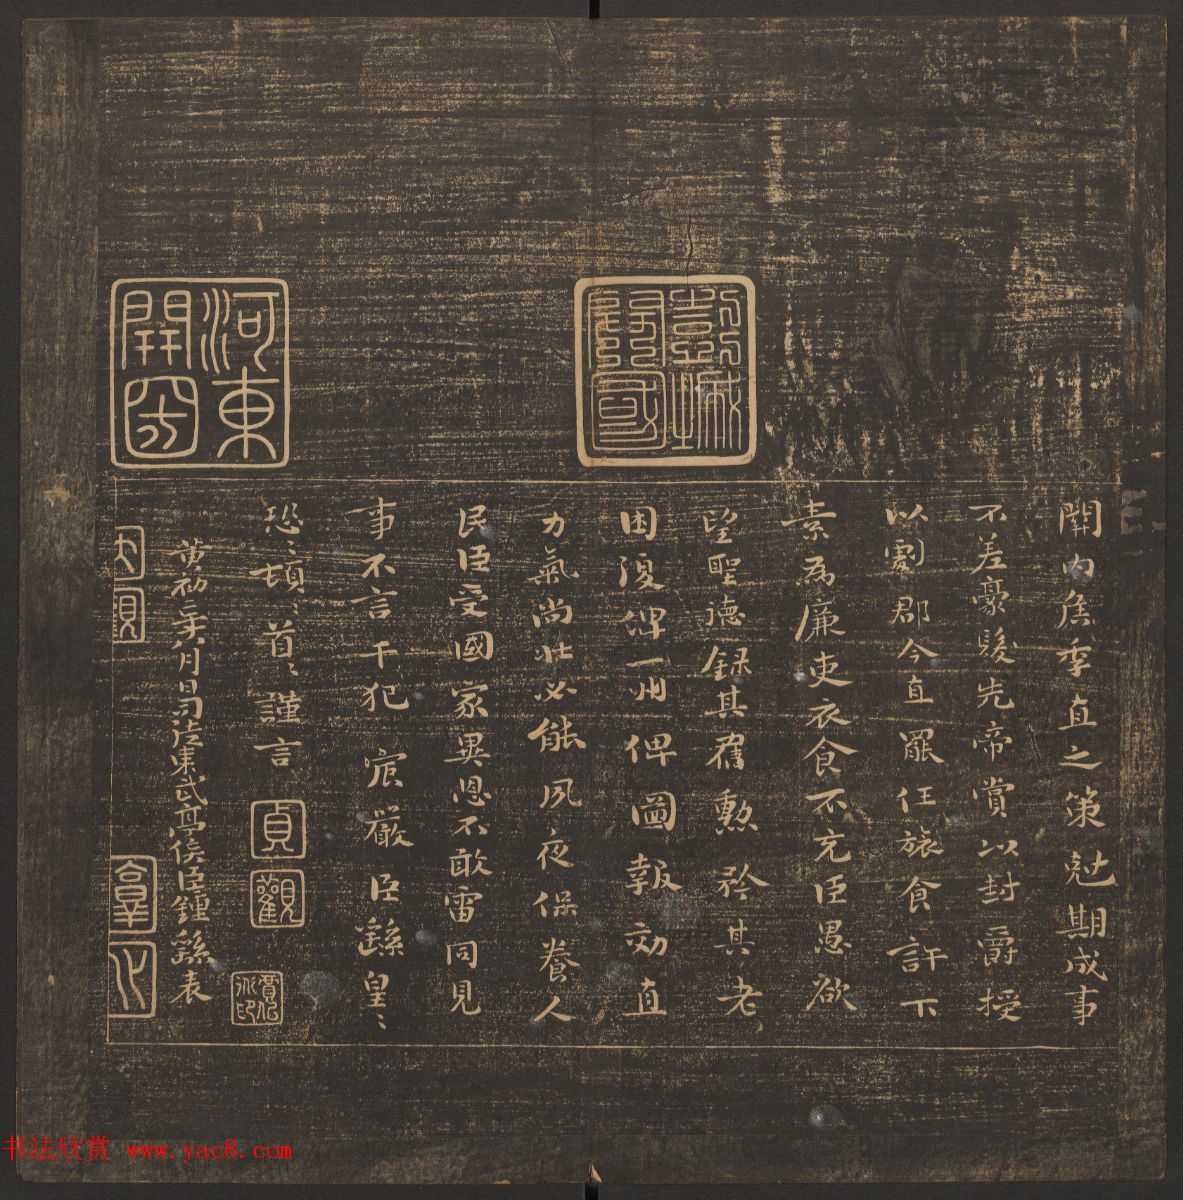 關內侯季直之策剋期成事
不差豪髮先帝賞以封爵授
以劇郡今直罷任旅食許下
素為廉吏衣食不充臣愚欲
望聖德錄其舊勳矜其老
困復俾一州俾圖報効直
力氣尚壯必能夙夜保養人
民臣受國家異恩不敢雷同見
事不言干犯宸嚴臣繇皇〻
恐〻頓〻首〻謹言
黃初二年八月日司徒東武亭侯臣鍾繇表
彭城
國
河東
貞觀
书法欣赏 www.yac8.com